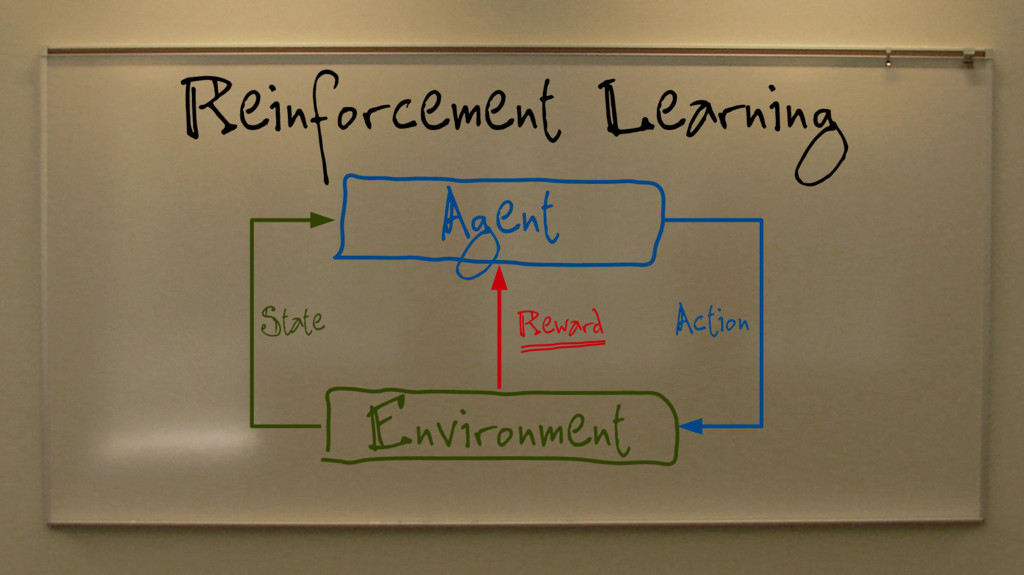 Reinforcement Learning
Agent
State
Reward
Action
Environment